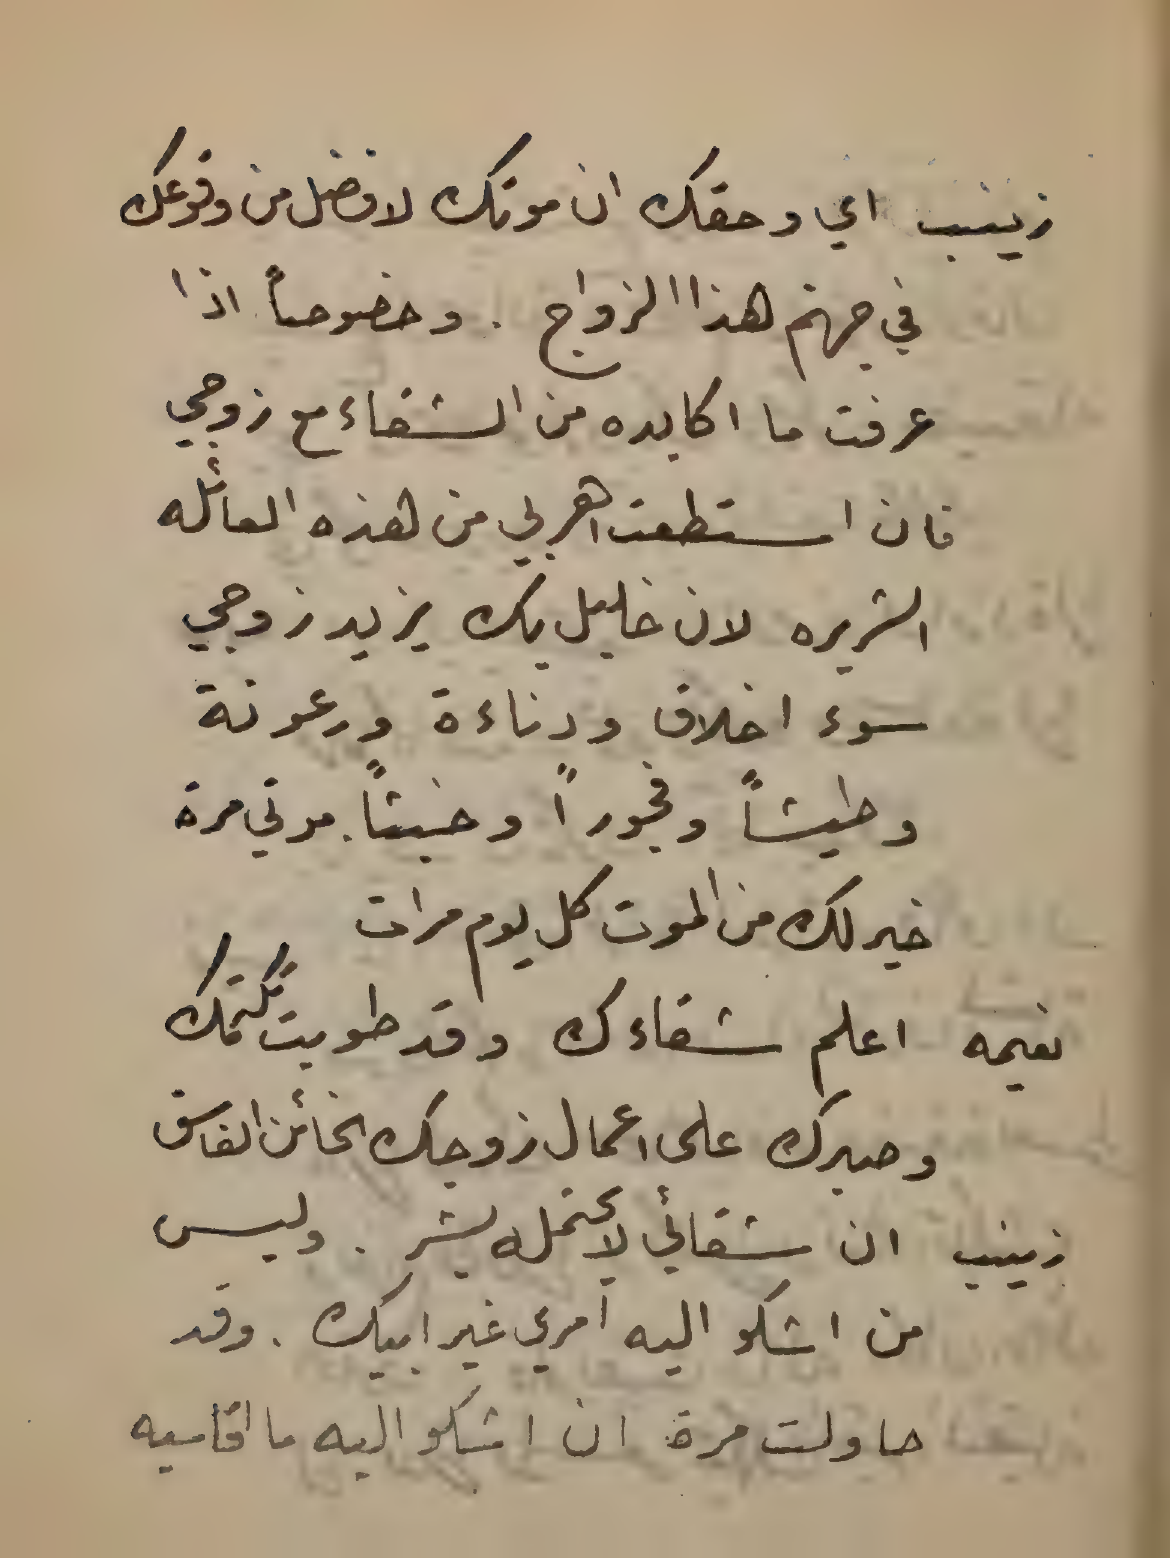 زينب اي وحقك ان موتك لافضل من وقوعك
في جهنم هذا الزواج . وخصوصاً اذا
عرفت ما اكابده من الشقاء مع زوجي
فان استطعت اهربي من هذه العائله
الشريره لان خليل بك يزيد زوجي
سوء اخلاق ودناءة ورعونة
وطيشاً وفجوراً وخبثاً . موتي مرة
خير لك من الموت كل يوم مرات
نعيمه اعلم شقاءك وقد طويت
وصبرك على اعمال زوجك الخائن الفاسق
زينب ان شقائي لا يحتمله بشر . وليس
من اشكو اليه امري غير ابيك . وقد
حاولت مرة ان اشكو اليه ما اقاسيه